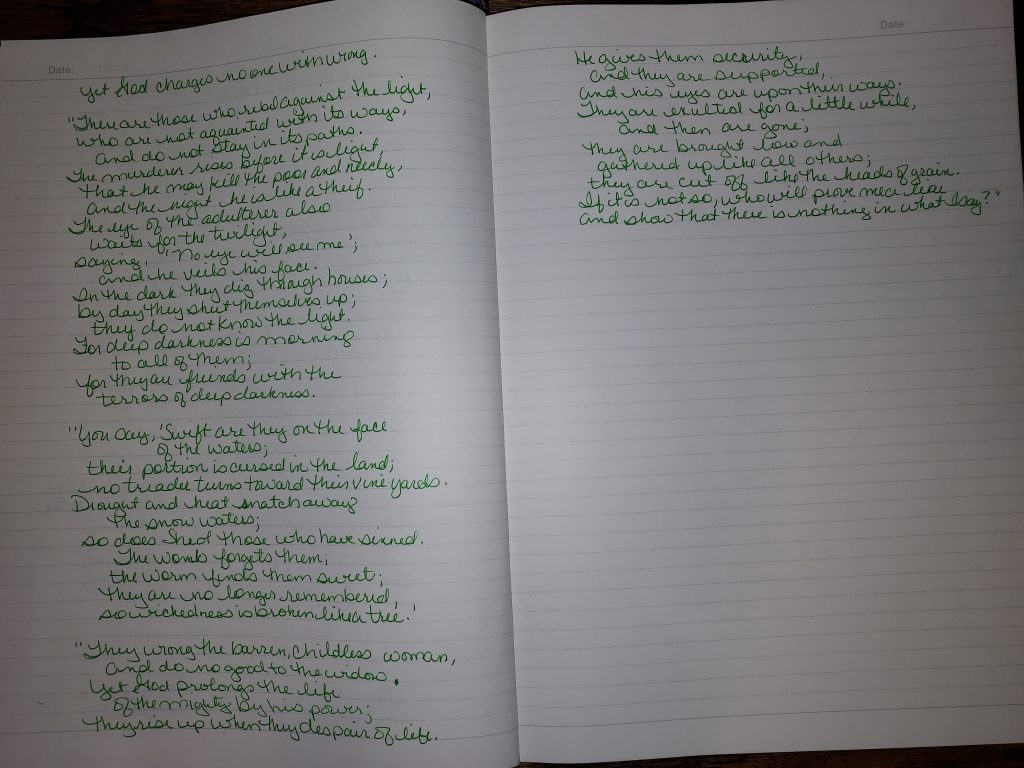 Date:
yet God charges no one with wrong.
"There are those who rebel against the light,
who are not aquanted with its ways,
and do not stay in its paths.
The murderer rises before it is light,
that he may kill the poor and needy,
and the night he is like a theif.
The eye of the adulterer also
waits for the twilight,
saying, 'No eye will see me';
and he veils his face.
In the dark they dig through houses;
by day they shut themselves up;
they do not know the light.
For deep darkness is morning
to all of them;
for they are friends with the
terrors of deep darkness.
"You say, 'Swift are they on the face
of the waters;
their portion is cursed in the land;
no treader turns toward their vineyards.
Drought and heat snatch away
the snow waters;
so does Sheol those who have sinned.
The womb forgets them;
the worm finds them sweet;
they are no longer remembered,
so wickedness is broken like a tree.'
"They wrong the barren, childless woman,
and do no good to the widow.
Yet God prolongs the life
of the mighty by his power;
they rise up when they despair of life.
Date:
He gives them security,
and they are supported,
and his eyes are upon their ways.
They are exulted for a little while,
and then are gone;
they are brought low and
gathered up like all others;
they are cut off like the heads of grain.
If it is not so, who will prove me a liar
and show that there is nothing in what I say?"